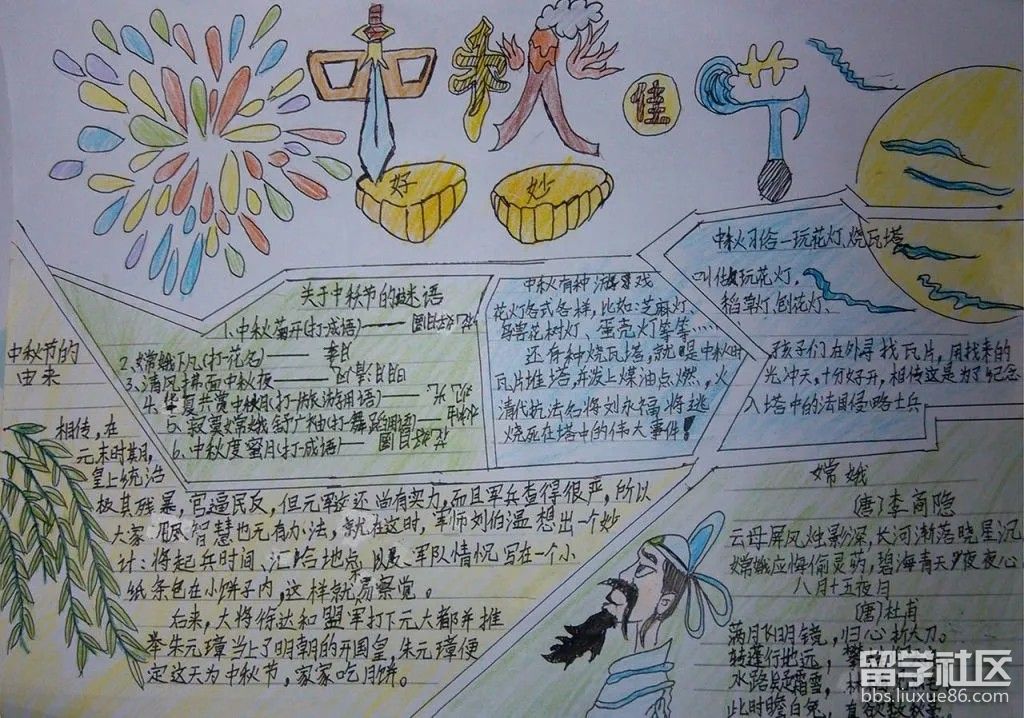 中秋佳节
好
妙
中秋节的
由来
相传，在
元末时期，
皇上统治
极其残暴，官逼民反，但元军还尚有实力，而且军兵查得很严，所以
大家用智慧也元有办法，就在这时，军师刘伯温想出一个妙
计：将起兵时间、汇合地点以及军队情况写在一个小
纸条包在小饼子内，这样就易察觉。
后来，大将徐达和盟军打下元大都并推
举朱元璋当上了明朝的开国皇，朱元璋便
定这天为中秋节，家家吃月饼。
关于中秋节的谜语
1、中秋菊开(打一成语)——
2、嫦娥下凡(打一花名)——
3、清风拂面中秋夜——
4、华夏共赏中秋月(打一旅游用语)——
5、寂寞嫦娥舒广袖(打一舞蹈用语)
6、中秋度蜜月(打一成语)——
中秋有种游戏
花灯各式各样，比如：芝麻灯、
鸟兽花树灯、蛋壳灯等等……
还有种烧瓦塔，就是中秋时
瓦片堆塔，并泼上煤油点燃，火
清代抗法名将刘永福将逃
烧死在塔中的伟大事件！
中秋习俗一玩花灯、烧瓦塔
叫做玩花灯，
稻草灯、刨花灯、
孩子们在外寻找瓦片，用找来的
光冲天，十分好开，相传这是为了纪念
入塔中的法国侵略士兵
嫦娥
(唐)李商隐
云母屏风烛影深，长河渐落晓星沉
嫦娥应悔偷灵药，碧海青天夜夜心
八月十五夜月
(唐)杜甫
满月飞明镜，归心折大刀。
转蓬行地远，
水路疑霜雪，
此时瞻白兔，直欲数秋毫
留学社区
bbs.liuxue86.com